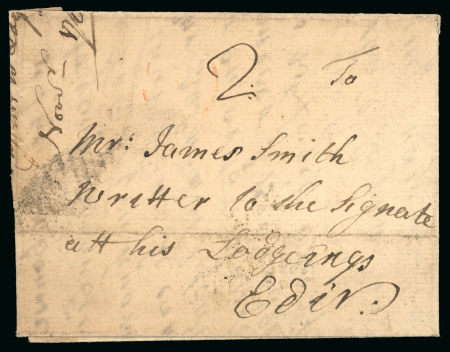 2. To
Mr: James Smith
Writter to the Signate
att his Lodgeings
Edin.
Nov